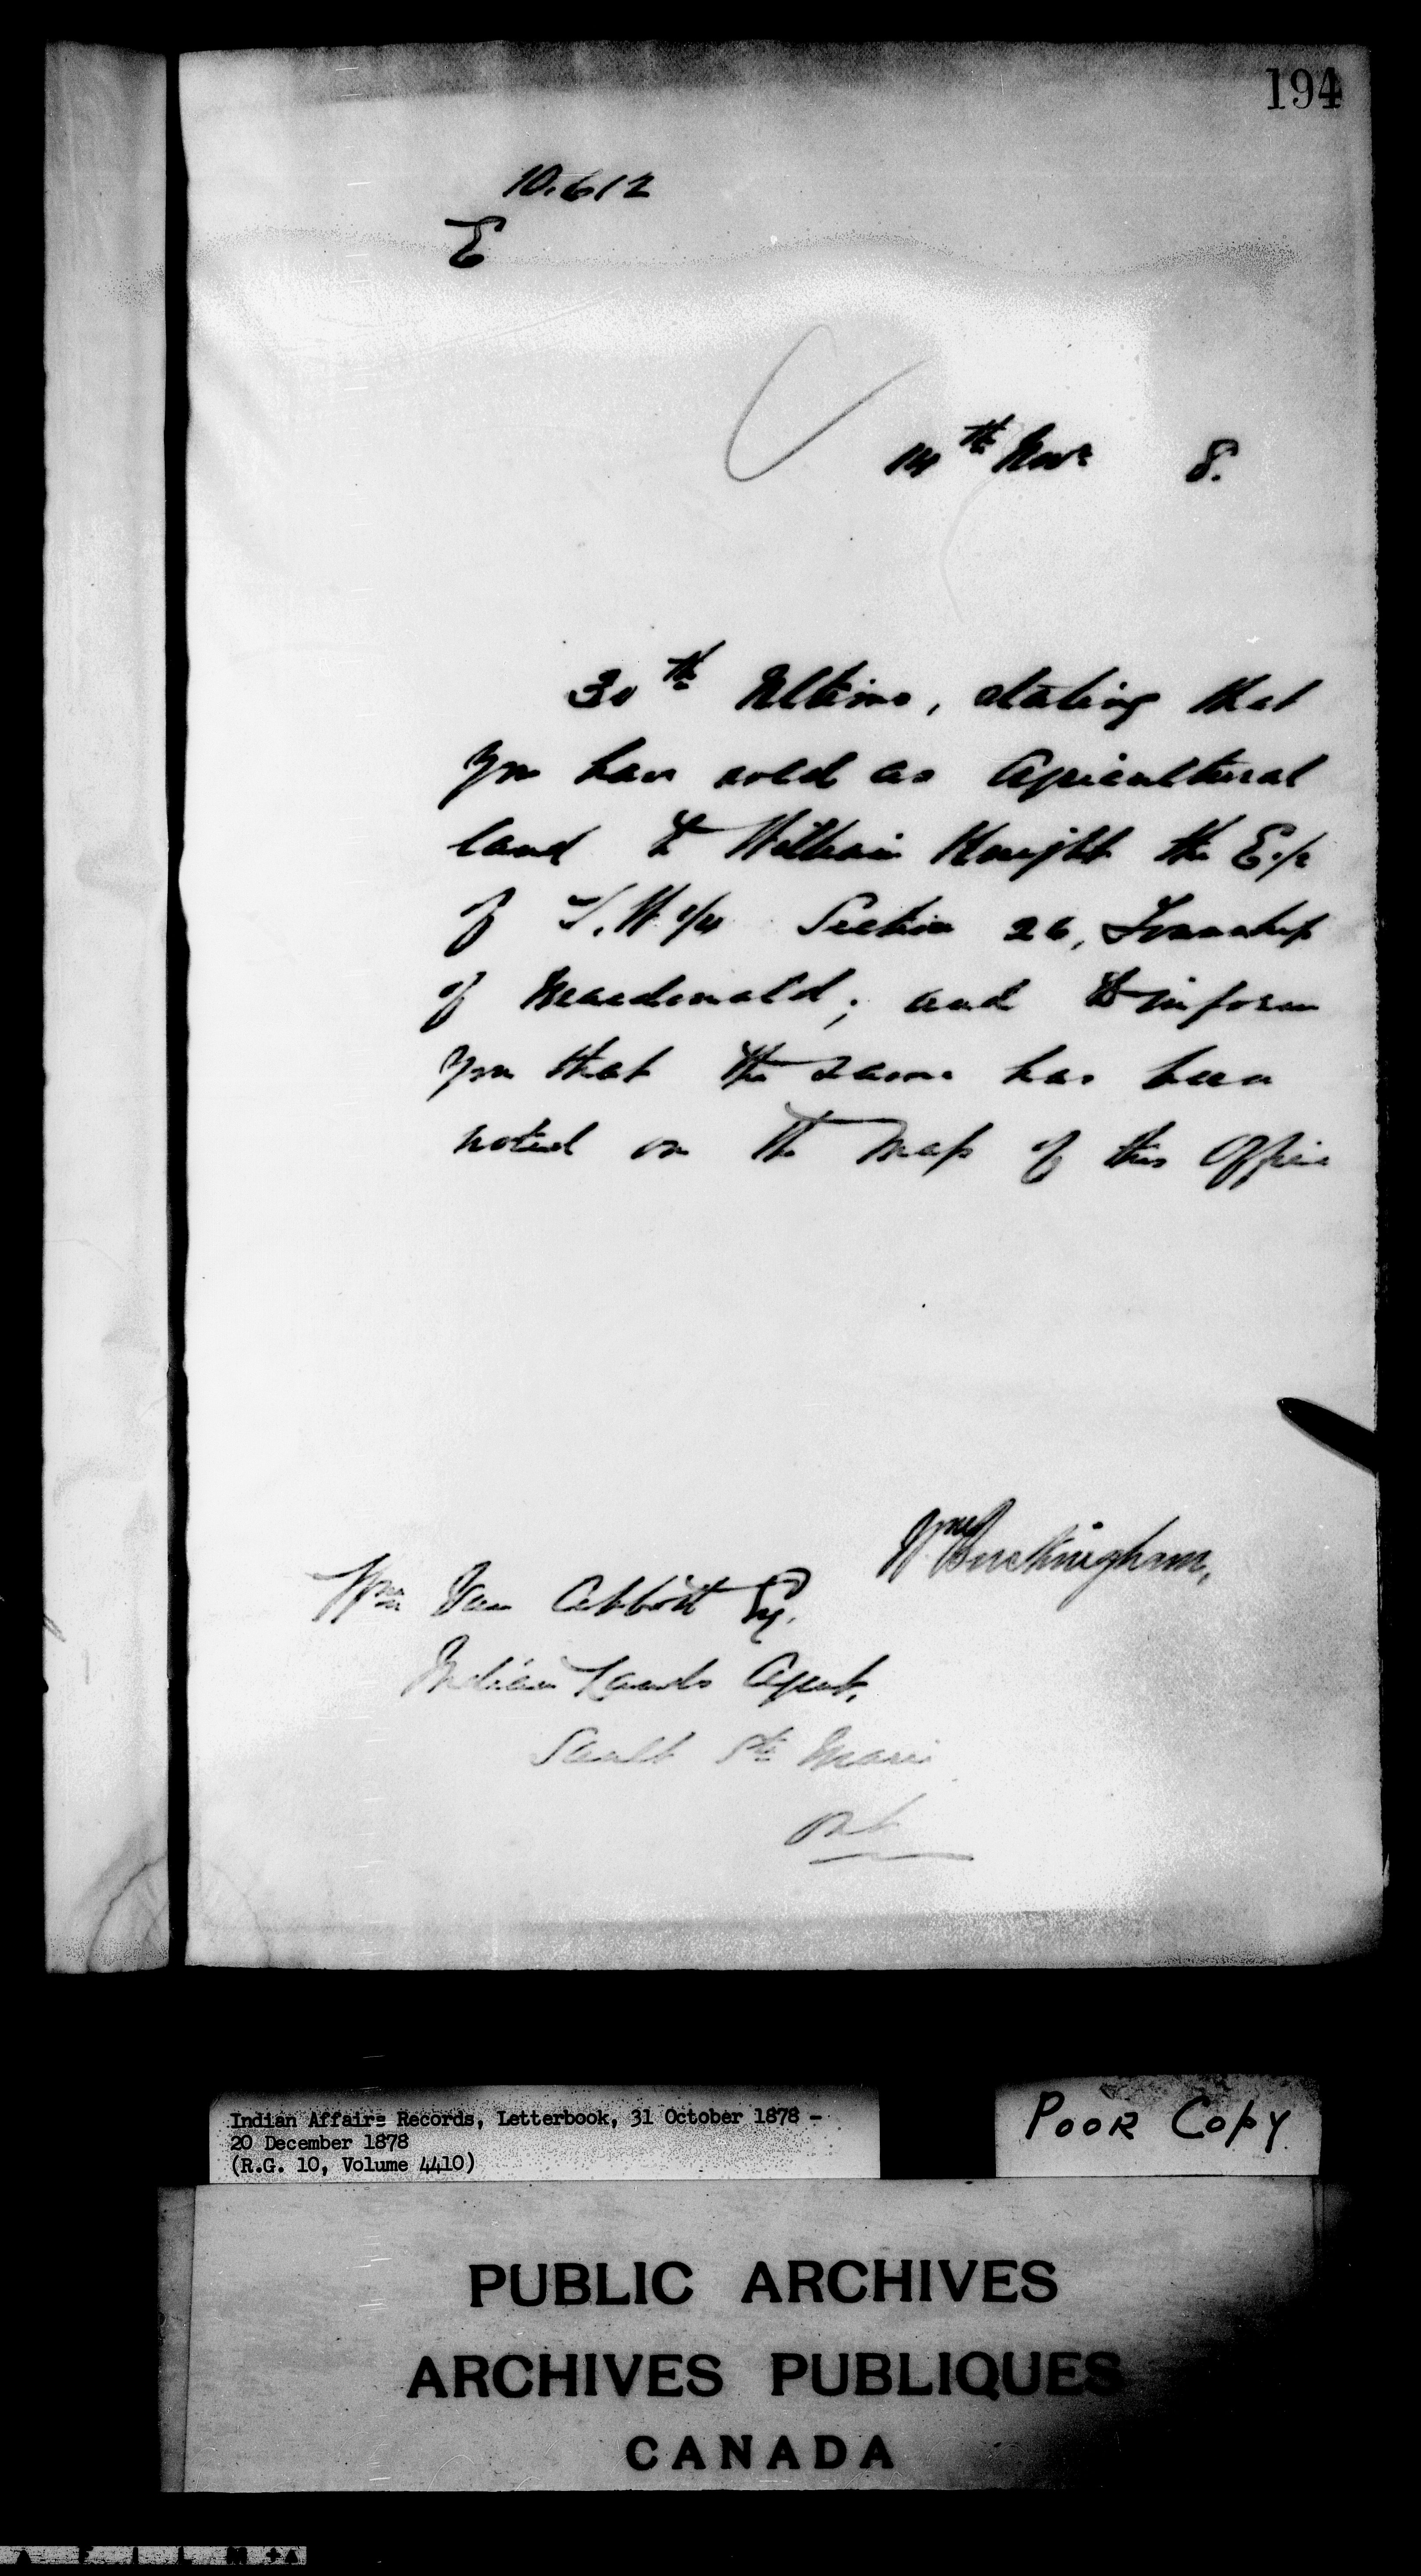 194
10.612
E
14th Novr 8.
30th Ultimo, stating that
you have sold as Agricultural
land to William Knight the E. 1/2
of S.W. 1/4 Section 26, Township
of Macdonald; and to inform
you that the same has been
noted on the Map of this Office
Wm Buckingham,
Wm Van Abbott Esq.
Indian Lands Agent,
Sault Ste Marie
Ont
Indian Affairs Records, Letterbook, 31 October 1878 -
20 December 1878
(R.G. 10, Volume 4410)
POOR COPY
PUBLIC ARCHIVES
ARCHIVES PUBLIQUES
CANADA